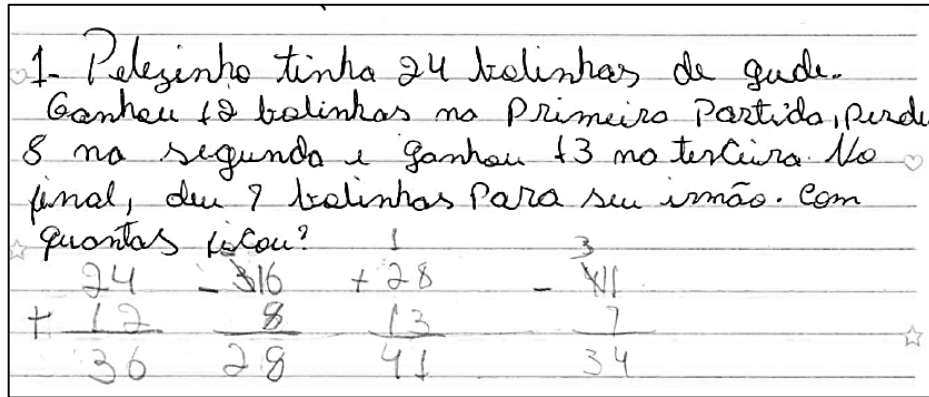 1- Pelezinho tinha 24 bolinhas de gude.
Ganhou 12 bolinhas na Primeira Partida, perdeu
8 na segunda e ganhou 13 na terceira. No
final, deu 7 bolinhas Para seu irmão. Com
quantas ficou?
1 3
24 - 316 + 28 - 411
+ 12 8 13 7
36 28 41 34